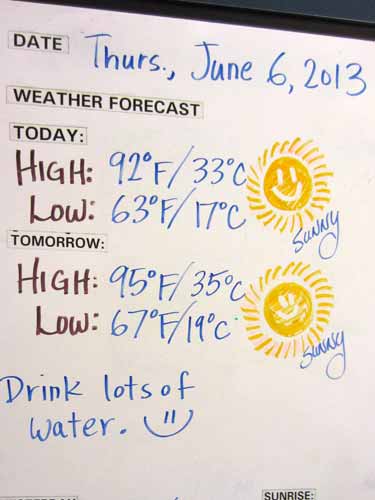 DATE Thurs., June 6, 2013
WEATHER FORECAST
TODAY:
HIGH: 92°F/33°C
LOW: 63°F/17°C
sunny
TOMORROW:
HIGH: 95°F/35°C
LOW: 67°F/19°C
sunny
Drink lots of
water.
SUNRISE: